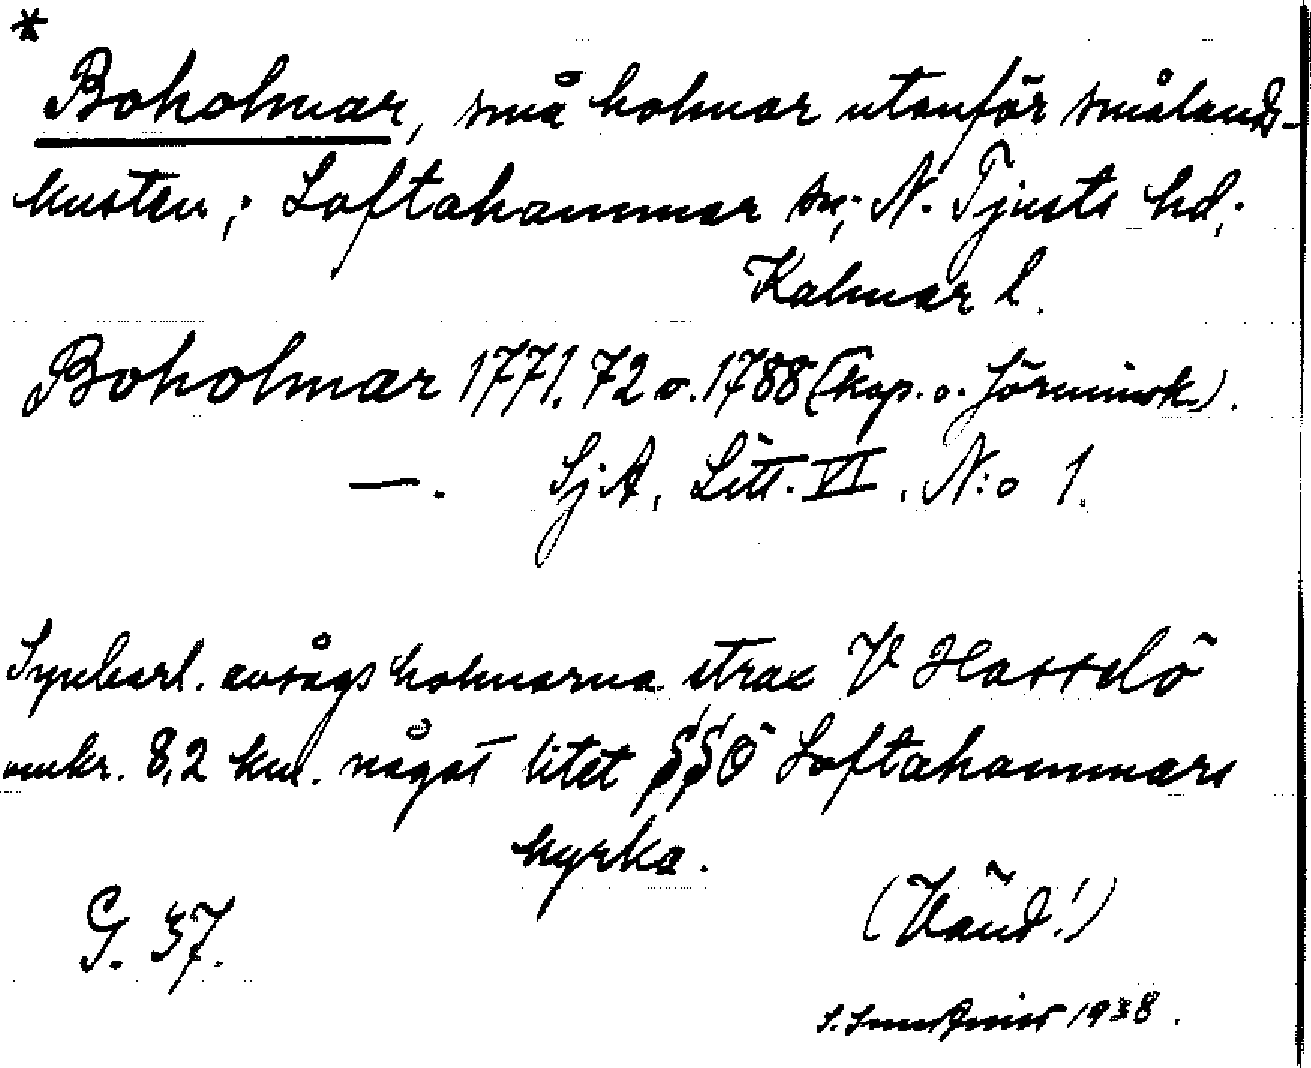 *
Boholmar, små holmar utanför smålands-
kusten; Loftahammar sn; N. Tjusts hd;
Kalmar l.
Boholmar 1771. 72 o. 1788 (kop. o. förminsk.).
—. SjA, Litt. VI. N:o 1.
Synbarl. avsågs holmarna strax V Hasselö
omkr. 8,2 km. något litet SSÖ Loftahammars
kyrka.
G. 37.
(Vänd!)
1938.